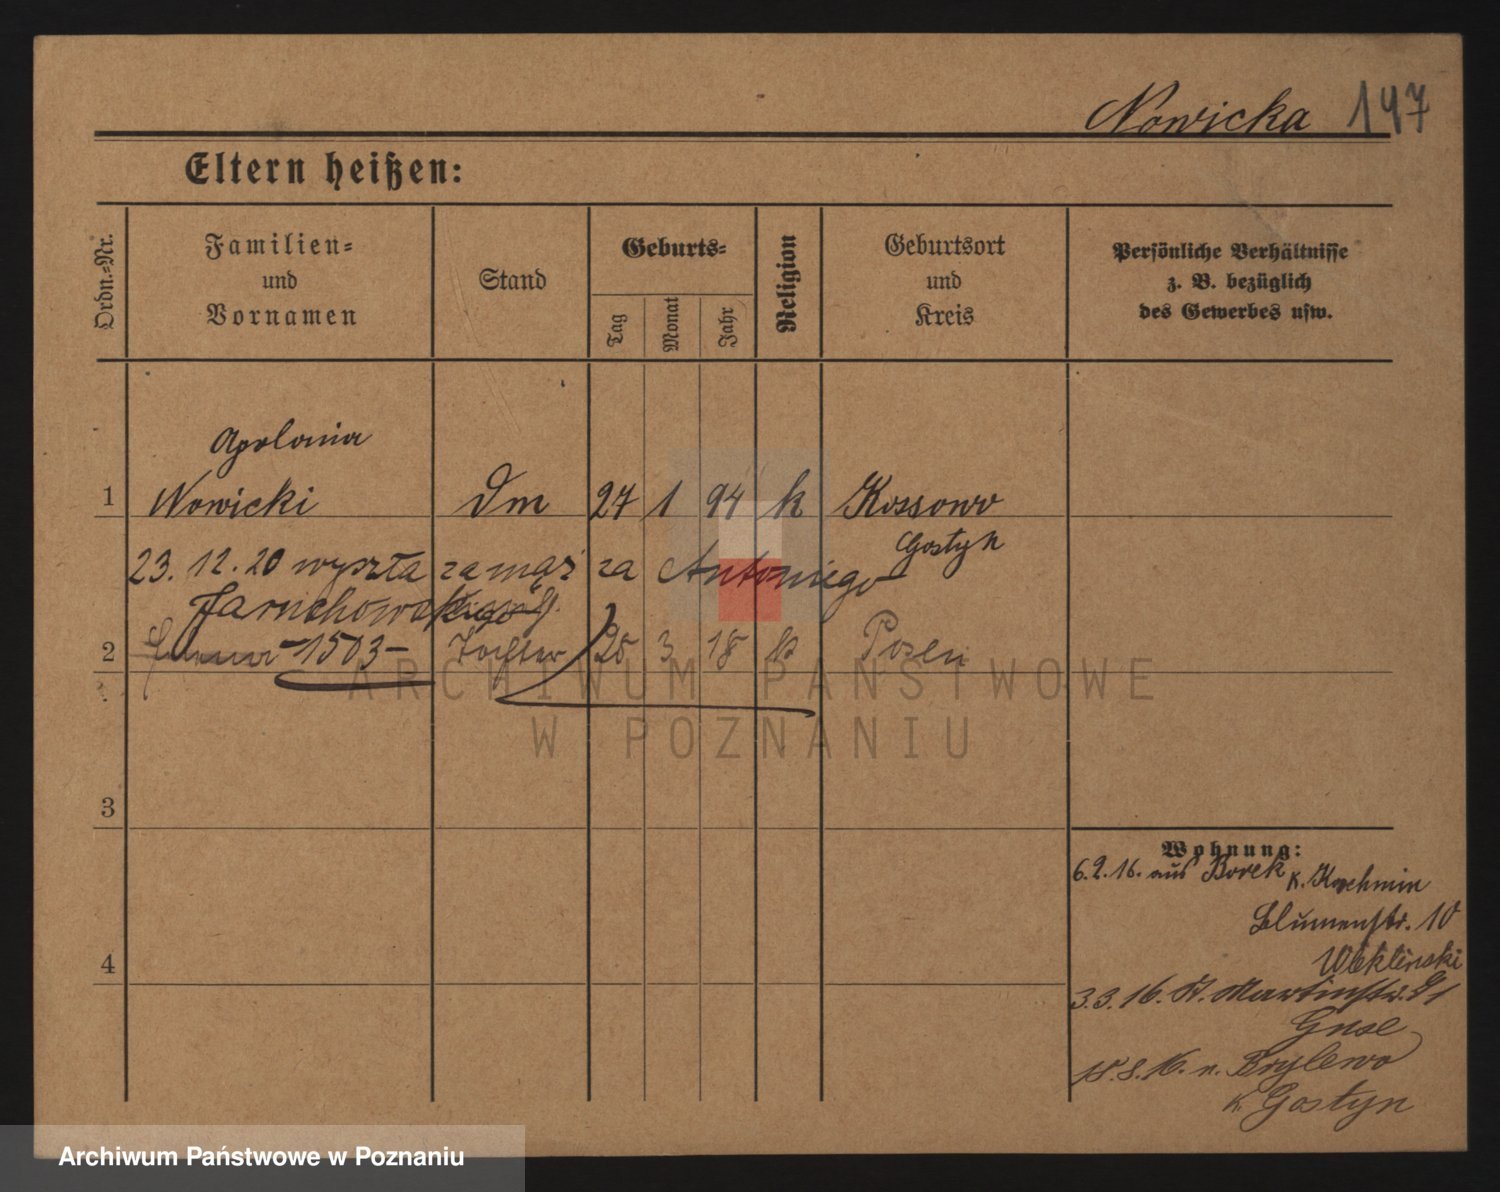 Nowicka 147
Eltern heißen:
Ordn.-Nr.
Familien-
und
Vornamen
Stand
Geburts-
Tag
Monat
Jahr
Religion
Geburtsort
und
Kreis
Persönliche Verhältnisse
z. B. bezüglich
des Gewerbes usw.
Apolonia
1 Nowicki Dm 27 1 94 k Kossowo
Gostyn
23. 12. 20 wyszła zamąż za Antoniego
2 -1503- Tochter 25 3 18 k Posen
ARCHIWUM PAŃSTWOWE
W POZNANIU
3
4
Wohnung:
6.2.16. aus Borek K. Koschmin
Blumenstr. 10
3.3.16. St. Martinstr.
18.8.16. n. Brylewo
K. Gostyn
Archiwum Państwowe w Poznaniu